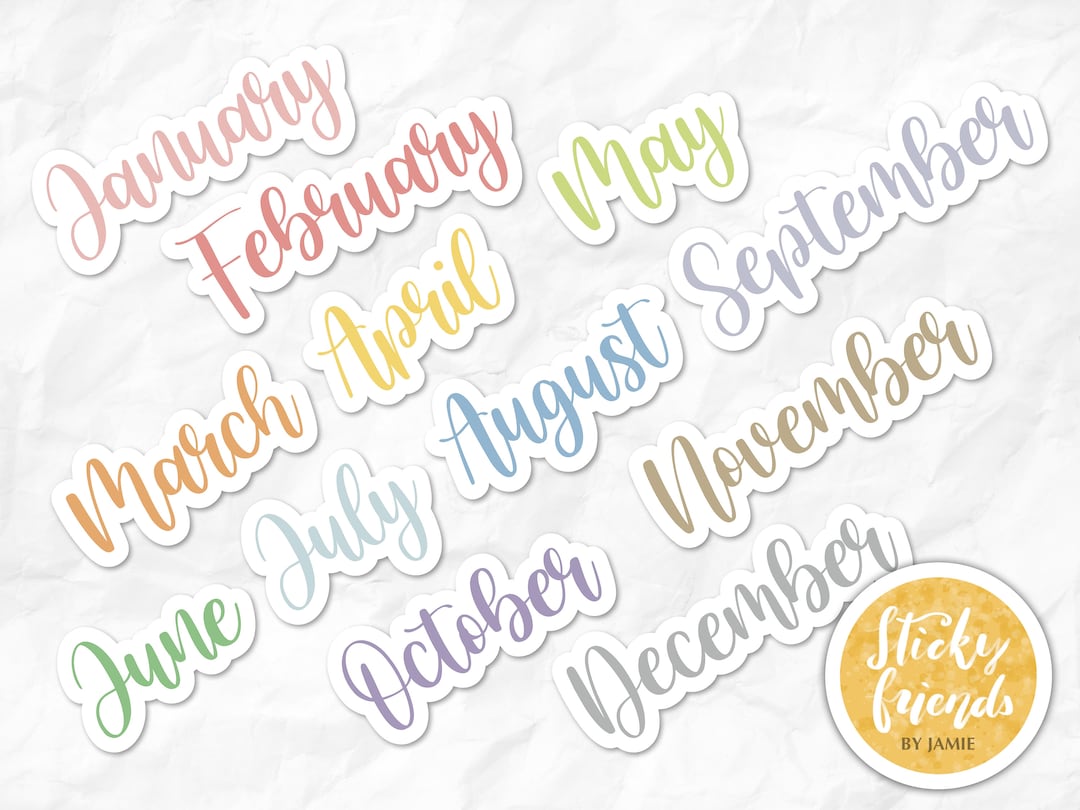 January
February
May
September
April
August
March
November
July
June
October
December
Sticky
friends
BY JAMIE